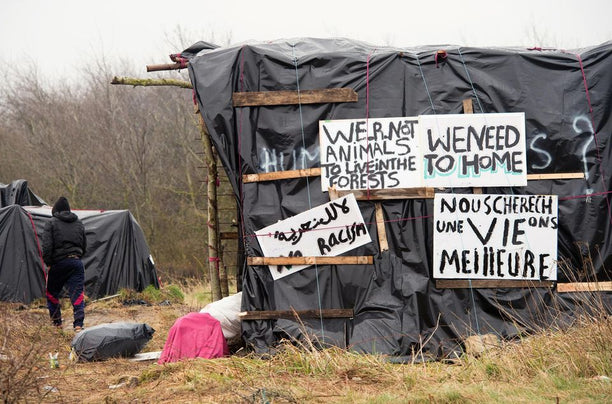 WE.R.NOT
ANIMALS
TO LIVE IN THE
FORESTS
WE NEED
TO HOME
لا للعنصرية
NO RACISM
NOUS CHERECH
UNE VIE ONS
MEILLEURE